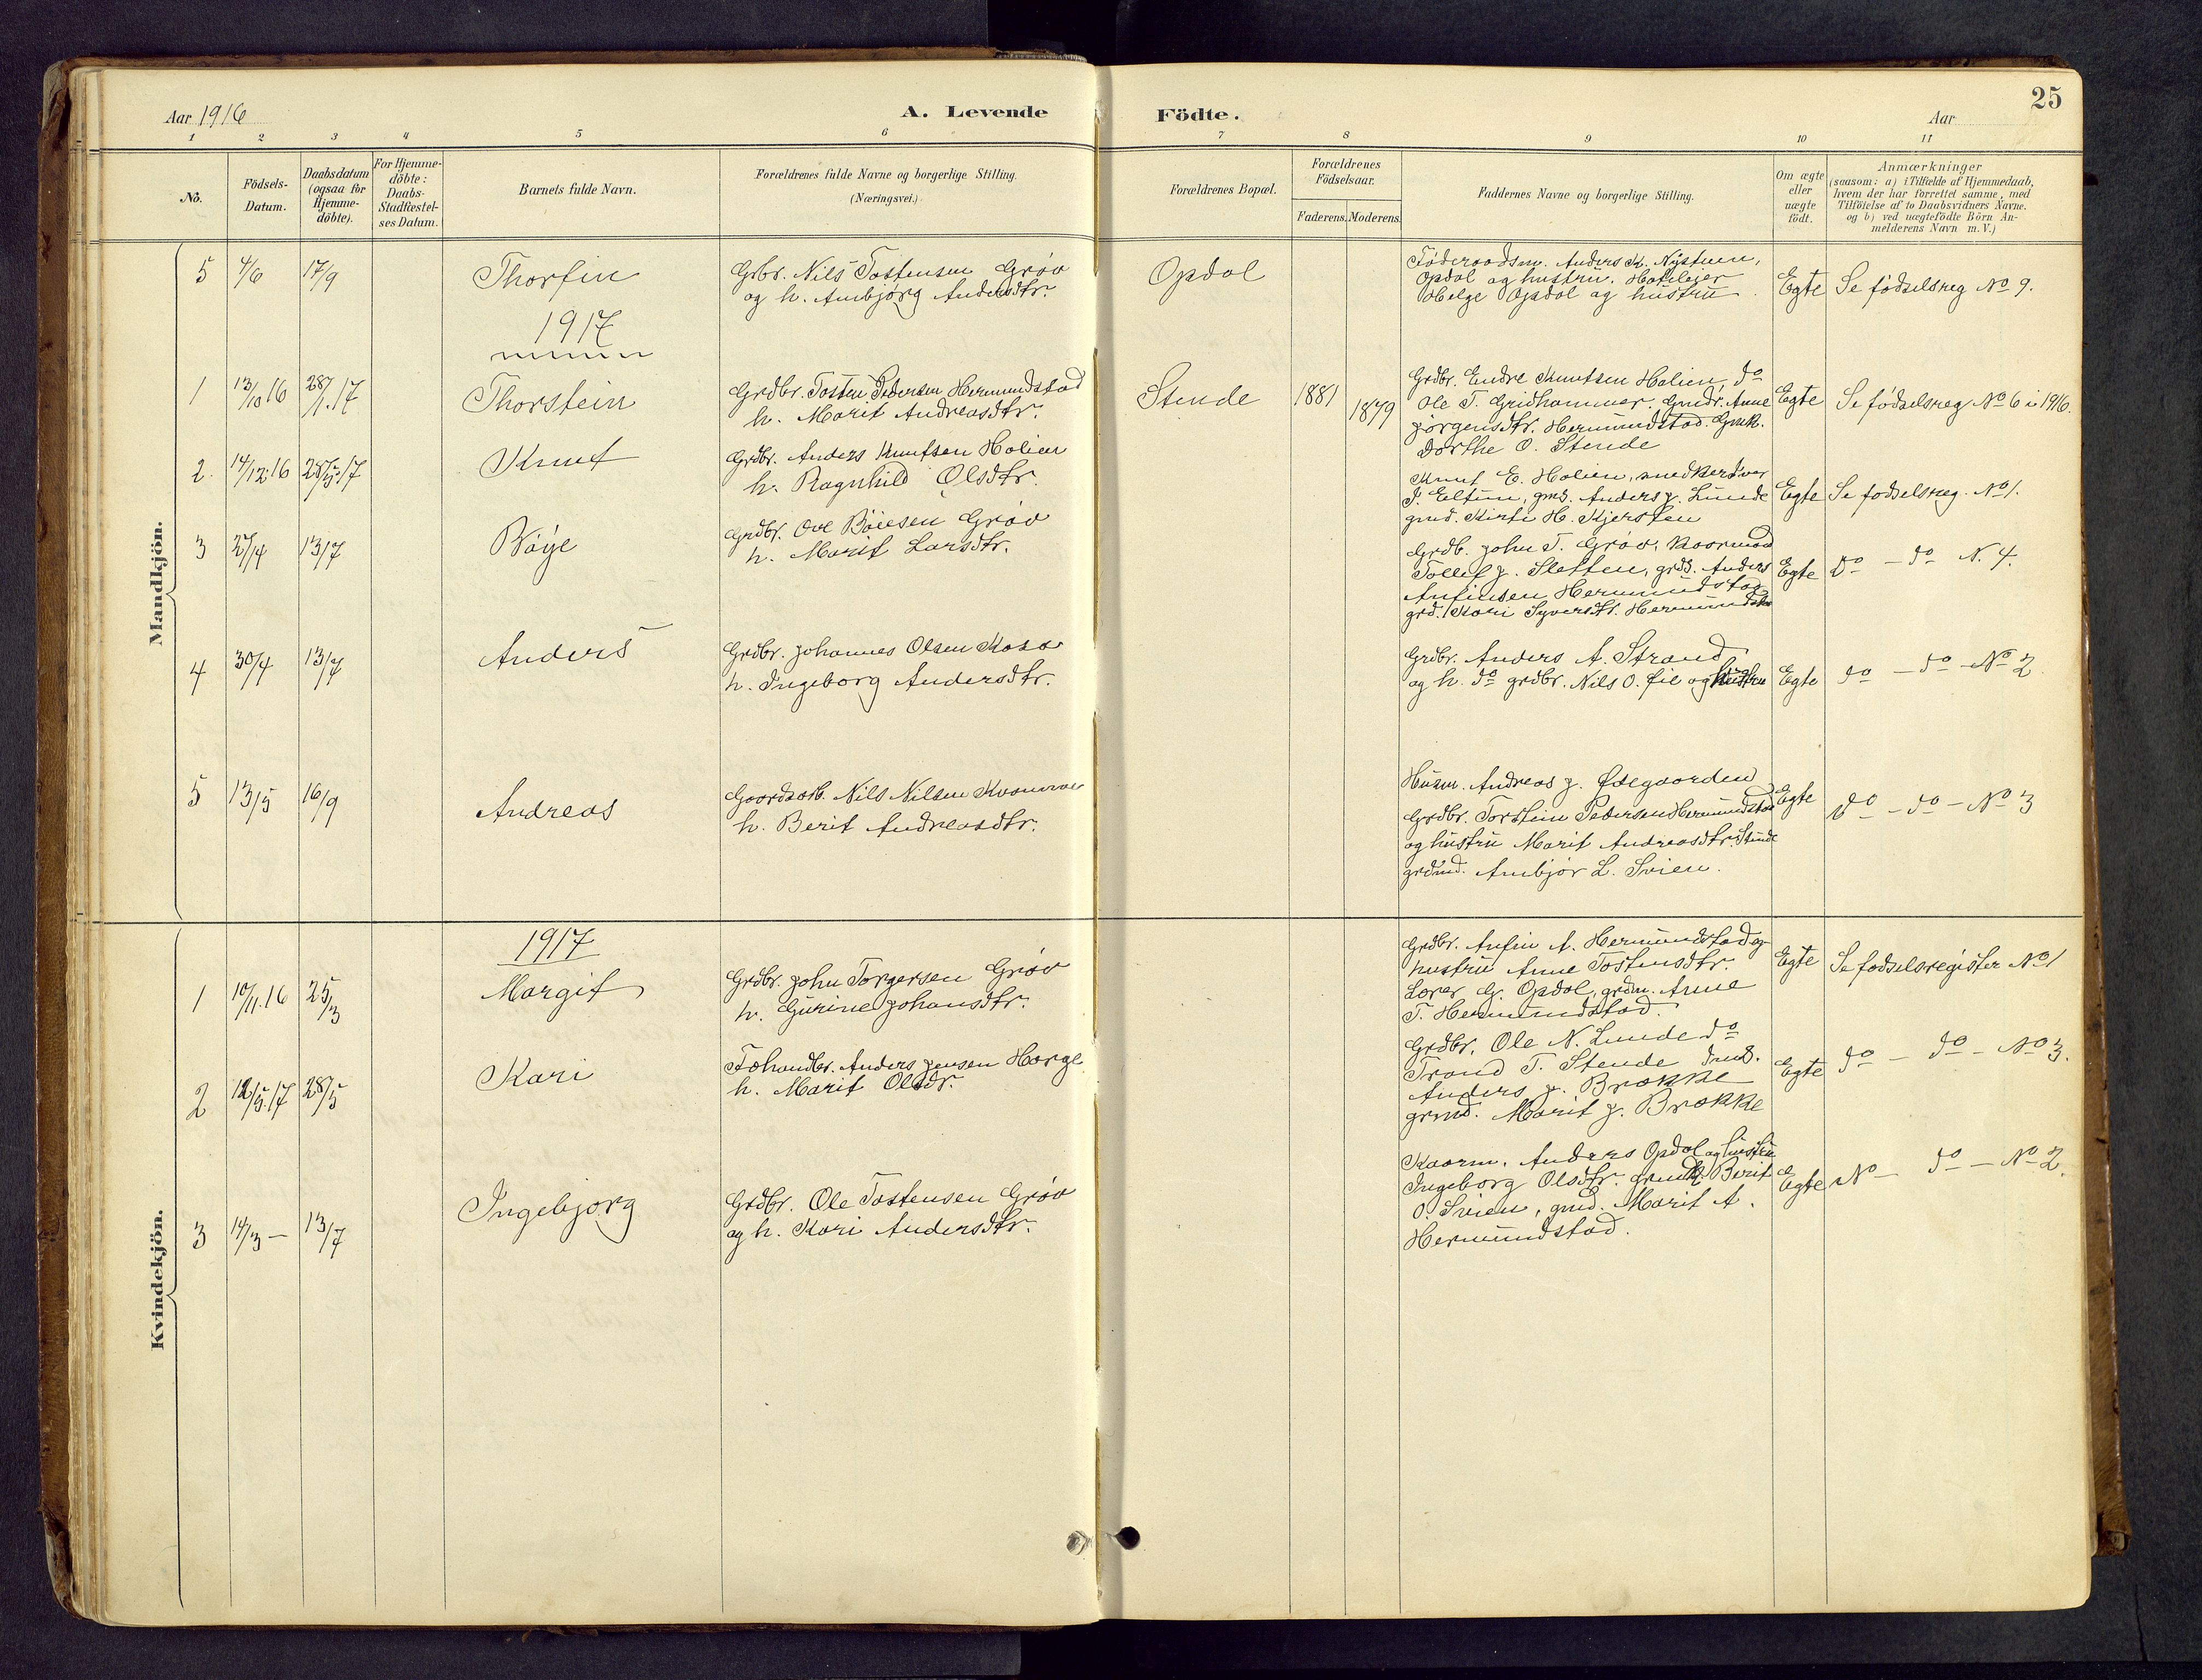 25
Aar 1916
A. Levende Födte.
Aar
1 2 3 4 5 6 7 8 9 10 11
No.
Födsels-
Datum.
Daabsdatum
(ogsaa for
Hjemme-
döbte).
For Hjemme-
döbte:
Daabs-
Stadfæstel-
ses Datum.
Barnets fulde Navn.
Forældrenes fulde Navne og borgerlige Stilling.
(Næringsvei.)
Forældrenes Bopæl.
Forældrenes
Födselsaar.
Faderens. Moderens.
Faddernes Navne og borgerlige Stilling.
Om ægte
eller
uægte
födt.
Anmærkninger
(saasom: a) i Tilfælde af Hjemmedaab,
hvem der har forrettet samme, med
Tilföielse af to Daabsvidners Navne.
og b) ved uægtefödte Börn An-
melderens Navn m. V.)
Mandkjön.
5 4/6 17/9 Thorfin
Grbr. Nils Tostensen Grøv
og h. Ambjørg Andersdtr.
Opdal
Föderaadsm. Anders K. Nystuen,
Opdal og hustru. Hoteleier
Helge Opdal og hustru.
Egte Se födselsreg No 9.
1917
1 13/10 16 28/1.17 Thorstein
Grdbr. Tosten Pedersen Hermundstad
h. Marit Andreasdtr.
Stende 1881 1879
Grdbr. Endre Knutsen Holien, do
Ole T. Gridhammer. Gmdr. Anne
Jörgensdtr. Hermundstad. Gmk.
Dorthe O. Stende
Egte Se födselsreg No 6 i 1916.
2. 14/12.16 28/5 17 Knut
Grdbr. Anders Knutsen Holien
h. Ragnhild Olsdtr.
Knut E. Holien, snedker Iver
J. Eltun, gms. Anders J. Lunde
gmd. Kirti H. Kjersten
Egte Se fodselsreg. No 1.
3 27/4 13/7 Böye
Grdbr. Ove Böiesen Grøv
h. Marit Larsdtr.
Grdb. John T. Grøv, Kaarmand
Tollef J. Sletten, grds. Anders
Anfinsen Hermundstad
grd. Kari Syversdtr. Hermundstad
Egte do - do N. 4.
4 30/4 13/7 Anders
Grdbr. Johannes Olsen Kasa
h. Ingeborg Andersdtr.
Grdbr. Anders A. Strand
og h. do grdbr. Nils O. Øie og hustru
Egte do - do - No 2
5 13/5 16/9 Andreas
Gaardarb. Nils Nilsen Kvamme
h. Berit Andreasdtr.
Husm. Andreas J. Ødegaarden
Grdbr. Torstein Pedersen Hermundstad
og hustru Marit Andreasdtr. Stende
grdmd. Ambjør L. Svien.
Egte do - do - No 3
Kvindekjön.
1917
1 10/11.16 25/3 Margit
Grdbr. John Torgersen Grøv
h. Gurine Johansdtr.
Grdbr. Anfin A. Hermundstad og
hustru Anne Tostensdtr.
Lærer G. Opdal, grdm. Anne
T. Hermundstad.
Egte Se fodselsregister No 1
2 12/5.17 28/5 Kari
Anders Jensen Hørge
h. Marit Olsdr.
Grdbr. Ole N. Lunde do
Trond T. Stende
Anders J. Brække
grmd. Marit J. Brække
Egte do - do - No 3.
3 14/3 - 13/7 Ingebjorg
Grdbr. Ole Tostensen Grøv
og h. Kari Andersdtr.
Kaarm. Anders Opdal og hustru
Ingeborg Olsdtr. Berit
O. Svien, gmd. Marit A.
Hermundstad.
Egte No - do - No 2.